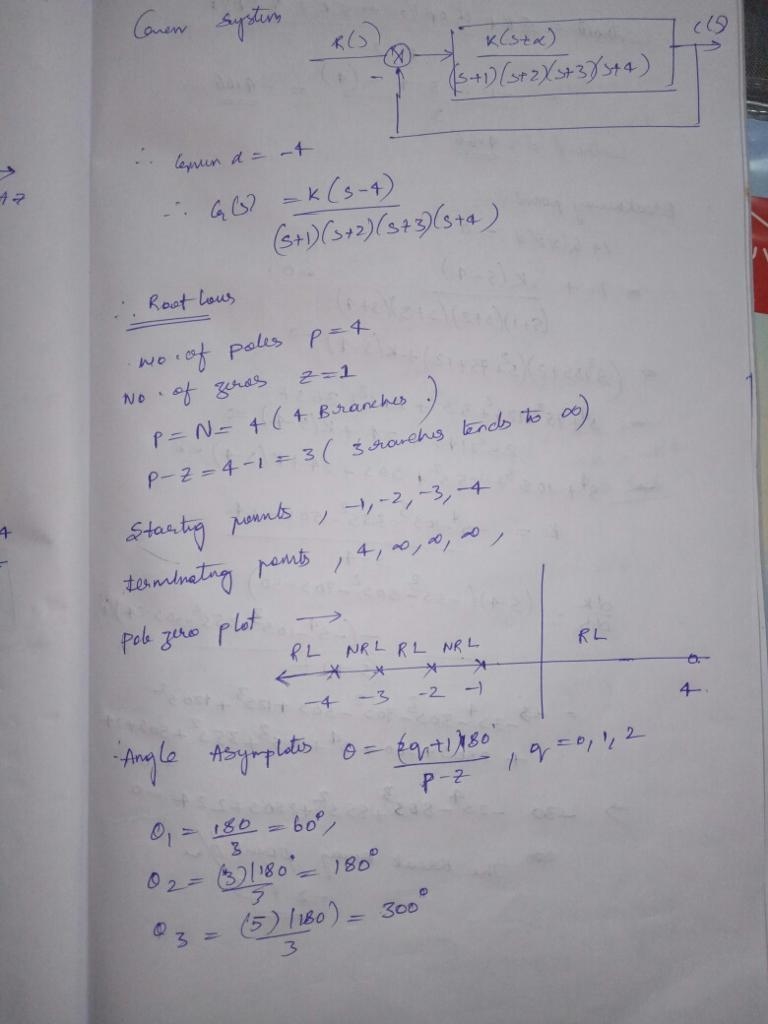 Given system
R(S)
C(S)
K(s+α)
(s+1)(s+2)(s+3)(s+4)
-
∴ Given α = -4
∴ G(S) = K(s-4)
(s+1)(s+2)(s+3)(s+4)
∴ Root Locus
No. of poles P=4
No. of zeros Z=1
P=N= 4 (4 Branches)
P-Z=4-1=3 ( 3 ranches tends to ∞)
Starting points, -1,-2,-3,-4
terminating points, 4, ∞, ∞, ∞,
pole zero plot →
RL NRL RL NRL RL
-4 -3 -2 -1 4
Angle Asymplotes θ = (2q+1)180 , q=0,1,2
P-Z
θ1 = 180 = 60°,
3
θ2 = (3)180° = 180°
3
θ3 = (5)(180) = 300°
3